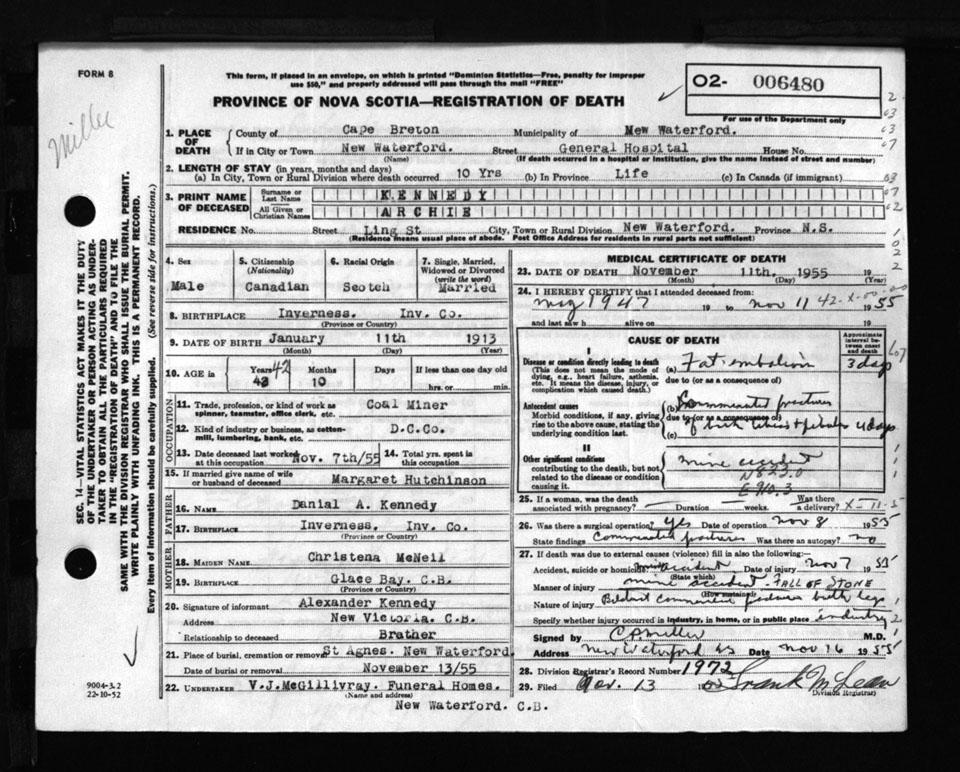 FORM 8
This form, if placed in an envelope, on which is printed "Dominion Statistics—Free, penalty for improper
use $50," and properly addressed will pass through the mail "FREE"
O2- 006480
For use of the Department only
PROVINCE OF NOVA SCOTIA—REGISTRATION OF DEATH
Miller
SEC. 14—VITAL STATISTICS ACT MAKES IT THE DUTY
OF THE UNDERTAKER OR PERSON ACTING AS UNDER-
TAKER TO OBTAIN ALL THE PARTICULARS REQUIRED
IN THE "REGISTRATION OF DEATH" AND TO FILE THE
SAME WITH THE DIVISION REGISTRAR WHO SHALL ISSUE THE BURIAL PERMIT.
WRITE PLAINLY WITH UNFADING INK. THIS IS A PERMANENT RECORD.
Every item of information should be carefully supplied. (See reverse side for instructions.)
1. PLACE OF DEATH
County of Cape Breton Municipality of Mew Waterford.
If in City or Town New Waterford. Street General Hospital House No.
(Name) (If death occurred in a hospital or institution, give the name instead of street and number)
2. LENGTH OF STAY (in years, months and days)
(a) In City, Town or Rural Division where death occurred 10 Yrs (b) In Province Life (c) In Canada (if immigrant)
3. PRINT NAME OF DECEASED
Surname or Last Name KENNEDY
All Given or Christian Names ARCHIE
RESIDENCE No. Street Ling St City, Town or Rural Division New Waterford. Province N.S.
(Residence means usual place of abode. Post Office Address for residents in rural parts not sufficient)
4. Sex Male
5. Citizenship (Nationality) Canadian
6. Racial Origin Scotch
7. Single, Married, Widowed or Divorced (write the word) Married
8. BIRTHPLACE Inverness. Inv. Co.
(Province or Country)
9. DATE OF BIRTH January 11th 1913
(Month) (Day) (Year)
10. AGE in Years 42 Months 10 Days If less than one day old
hrs. or min.
OCCUPATION
11. Trade, profession, or kind of work as
spinner, teamster, office clerk, etc. Coal Miner
12. Kind of industry or business, as cotton-
mill, lumbering, bank, etc. D.C.Co.
13. Date deceased last worked at this occupation Nov. 7th/55
14. Total yrs. spent in this occupation
15. If married give name of wife
or husband of deceased Margaret Hutchinson
FATHER
16. Name Danial A. Kennedy
17. Birthplace Inverness. Inv. Co.
(Province or Country)
MOTHER
18. MAIDEN NAME Christena McNeil
19. Birthplace Glace Bay. C.B.
(Province or Country)
20. Signature of informant Alexander Kennedy
Address New Victoria. C.B.
Relationship to deceased Brather
21. Place of burial, cremation or removal St Agnes. New Waterford
Date of burial or removal November 13/55
22. UNDERTAKER V.J.McGillivray. Funeral Homes.
(Name and address)
New Waterford. C.B.
9004-3.2
22-10-52
MEDICAL CERTIFICATE OF DEATH
23. DATE OF DEATH November 11th. 1955 19
(Month) (Day) (Year)
24. I HEREBY CERTIFY that I attended deceased from:
1947 19 to Nov 11 19 55
and last saw h alive on 19
CAUSE OF DEATH
Approximate interval between onset and death
I
Disease or condition directly leading to death
(This does not mean the mode of
dying, e.g., heart failure, asthenia,
etc. It means the disease, injury, or
complication which caused death.)
(a) Fat embolism 3 days
due to (or as a consequence of)
Antecedent causes
Morbid conditions, if any, giving
rise to the above cause, stating the
underlying condition last.
(b) Comminuted fractures
due to (or as a consequence of)
(c) of both tibias & fibulas 4 days
II
Other significant conditions
contributing to the death, but not
related to the disease or condition
causing it.
mine accident
N823.0
E910.3
25. If a woman, was the death
associated with pregnancy? Duration weeks. Was there a delivery?
26. Was there a surgical operation? Yes Date of operation Nov 8 1955
State findings Comminuted fractures Was there an autopsy? no
27. If death was due to external causes (violence) fill in also the following:—
Accident, suicide or homicide? accident Date of injury Nov 7 1955
(State which)
Manner of injury mine accident - FALL OF STONE
(How sustained)
Nature of injury Bilateral comminuted fractures both legs
Specify whether injury occurred in industry, in home, or in public place industry
Signed by C.P. Miller M.D.
Address New Waterford NS Date Nov 16 1955
28. Division Registrar's Record Number 1972
29. Filed Nov. 13 Frank McLean
Division Registrar